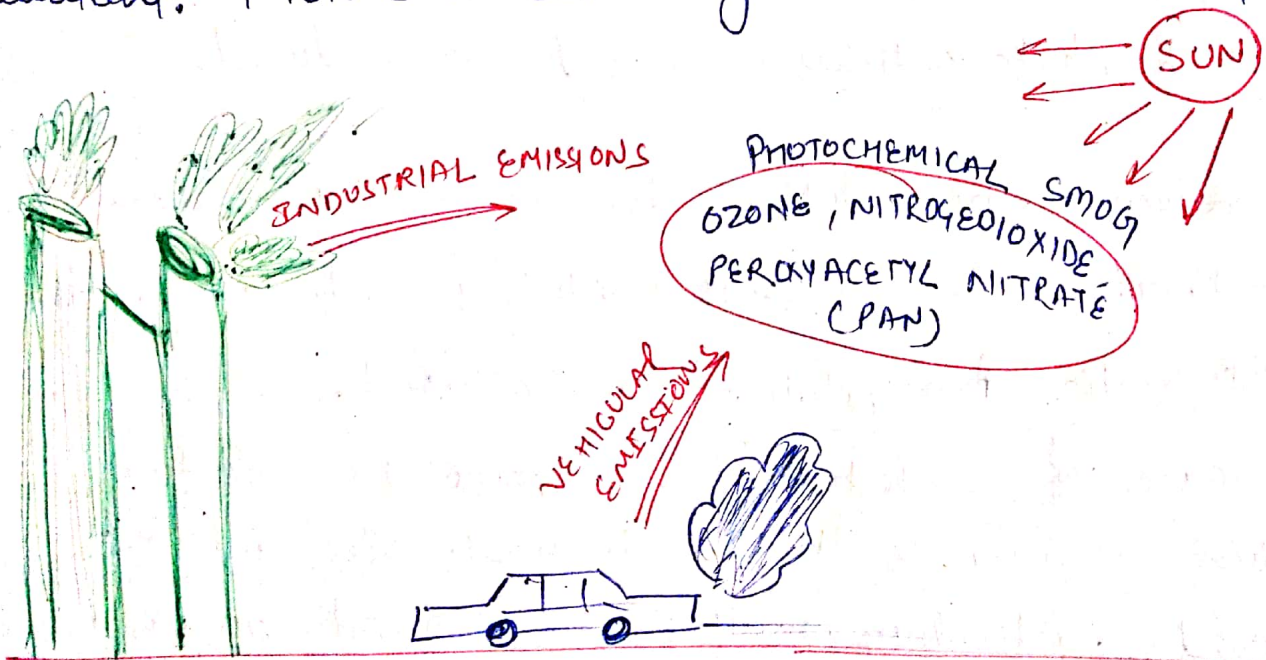 SUN
INDUSTRIAL EMISSIONS
PHOTOCHEMICAL SMOG
OZONE, NITROGEDIOXIDE
PEROXYACETYL NITRATE
(PAN)
VEHICULAR
EMISSIONS